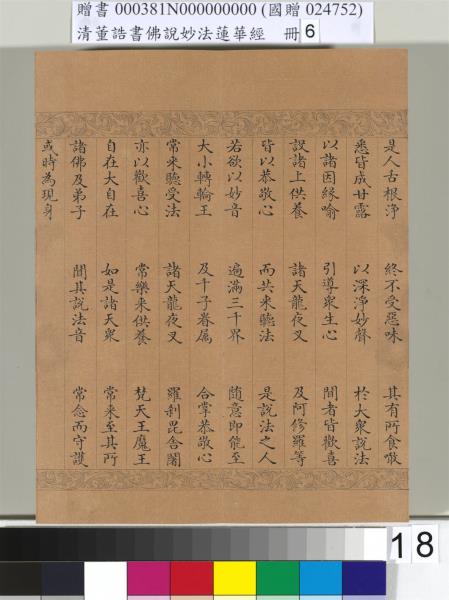 贈書 000381N000000000 (國贈 024752)
清董誥書佛說妙法蓮華經 冊 6
是人舌根淨 終不受惡味 其有所食噉
悉皆成甘露 以深淨妙聲 於大眾說法
以諸因緣喻 引導眾生心 聞者皆歡喜
設諸上供養 諸天龍夜叉 及阿修羅等
皆以恭敬心 而共來聽法 是說法之人
若欲以妙音 遍滿三千界 隨意即能至
大小轉輪王 及千子眷屬 合掌恭敬心
常來聽受法 諸天龍夜叉 羅剎毘舍闍
亦以歡喜心 常樂來供養 梵天王魔王
自在大自在 如是諸天眾 常來至其所
諸佛及弟子 聞其說法音 常念而守護
或時為現身
18